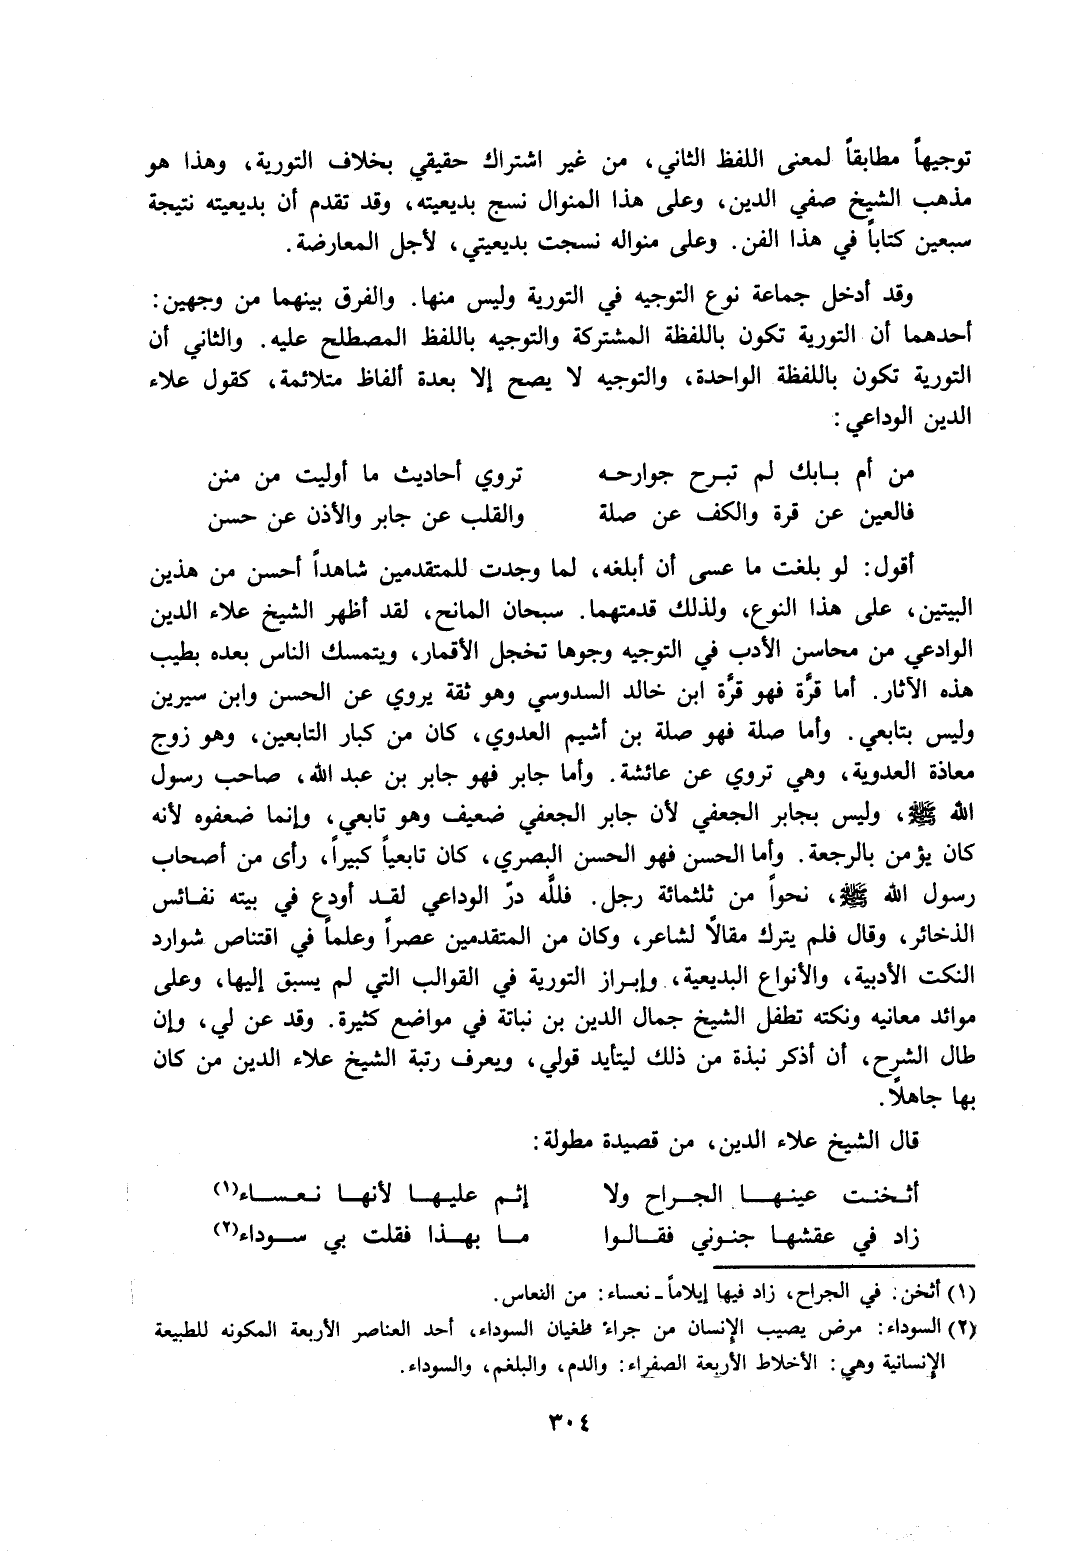 توجيهاً مطابقاً لمعنى اللفظ الثاني، من غير اشتراك حقيقي بخلاف التورية، وهذا هو
مذهب الشيخ صفي الدين، وعلى هذا المنوال نسج بديعيته، وقد تقدم أن بديعيته نتيجة
سبعين كتاباً في هذا الفن. وعلى منواله نسجت بديعيتي، لأجل المعارضة.
وقد أدخل جماعة نوع التوجيه في التورية وليس منها. والفرق بينهما من وجهين:
أحدهما أن التورية تكون باللفظة المشتركة والتوجيه باللفظ المصطلح عليه. والثاني أن
التورية تكون باللفظة الواحدة، والتوجيه لا يصح إلا بعدة ألفاظ متلائمة، كقول علاء
الدين الوداعي:
من أم بـابك لم تبـرح جوارحـه تروي أحاديث ما أوليت من منن
فالعين عن قرة والكف عن صلة والقلب عن جابر والأذن عن حسن
أقول: لو بلغت ما عسى أن أبلغه، لما وجدت للمتقدمين شاهداً أحسن من هذين
البيتين، على هذا النوع، ولذلك قدمتهما. سبحان المانح، لقد أظهر الشيخ علاء الدين
الوادعي من محاسن الأدب في التوجيه وجوها تخجل الأقمار، ويتمسك الناس بعده بطيب
هذه الآثار. أما قرَّة فهو قرَّة ابن خالد السدوسي وهو ثقة يروي عن الحسن وابن سيرين
وليس بتابعي. وأما صلة فهو صلة بن أشيم العدوي، كان من كبار التابعين، وهو زوج
معاذة العدوية، وهي تروي عن عائشة. وأما جابر فهو جابر بن عبد الله، صاحب رسول
الله ﷺ، وليس بجابر الجعفي لأن جابر الجعفي ضعيف وهو تابعي، وإنما ضعفوه لأنه
كان يؤمن بالرجعة. وأما الحسن فهو الحسن البصري، كان تابعياً كبيراً، رأى من أصحاب
رسول الله ﷺ، نحواً من ثلثمائة رجل. فللَّه درّ الوداعي لقـد أودع في بيته نفـائس
الذخائر، وقال فلم يترك مقالًا لشاعر، وكان من المتقدمين عصراً وعلماً في اقتناص شوارد
النكت الأدبية، والأنواع البديعية، وإبـراز التورية في القوالب التي لم يسبق إليها، وعلى
موائد معانيه ونكته تطفل الشيخ جمال الدين بن نباتة في مواضع كثيرة. وقد عن لي، وإن
طال الشرح، أن أذكر نبذة من ذلك ليتأيد قولي، ويعرف رتبة الشيخ علاء الدين من كان
بها جاهلًا.
قال الشيخ علاء الدين، من قصيدة مطولة:
أثـخنـت عينـهـا الجـراح ولا إثـم عليـهـا لأنهـا نـعـسـاء(١)
زاد في عقشهـا جنـوني فقـالـوا مـا بهـذا فقلت بي سـوداء(٢)
(١) أثخن: في الجراح، زاد فيها إيلاماً ـ نعساء: من النعاس.
(٢) السوداء: مرض يصيب الإنسان من جراء طغيان السوداء، أحد العناصر الأربعة المكونه للطبيعة
الإنسانية وهي: الأخلاط الأربعة الصفراء: والدم، والبلغم، والسوداء.
٣٠٤